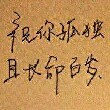 祝你孤独
且长命百岁